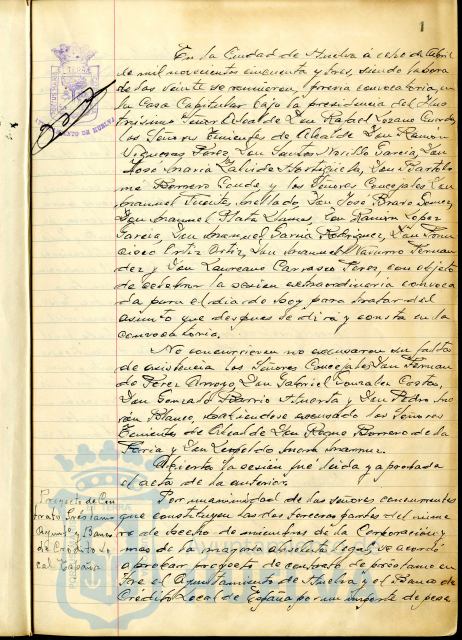 1
En la Ciudad de Huelva á ocho de Abril
de mil novecientos cincuenta y tres, siendo la hora
de las veinte se reunieron, previa convocatoria, en
la Casa Capitular bajo la presidencia del Ilus
trísimo Señor Alcalde Don Rafael Lozano Cuerda,
los Señores Tenientes de Alcalde Don Ramón
Vigueras Pérez, Don Santos Morillo García, Don
José María Lalvide Hortigüela, Don Bartolo
mé Borrero Conde, y los Señores Concejales Don
Manuel Fuente Mellado, Don José Bravo Gómez,
Don Manuel Plata Llamas, Don Ramón López
García, Don Manuel García Rodríguez, Don Fran
cisco Ortiz Ortiz, Don Manuel Navarro Fernan
dez y Don Laureano Carrasco Pérez, con objeto
de celebrar la sesión extraordinaria convoca
da para el dia de hoy para tratar del
asunto que despues se dirá y consta en la
convocatoria.
No concurrieron no excusaron su falta
de asistencia los Señores Concejales Don Fernan
do Pérez Arroyo, Don Gabriel González Costas,
Don Gonzalo Barrio Huerta y Don Pedro Mo
rán Blanco, habiendose excusado los Señores
Tenientes de Alcalde Don Roque Borrero de la
Feria y Don Leopoldo Mora
Abierta la sesión fué leida y aprobada
el acta de la anterior.
Proyecto de Con
trato Préstamo
Ayunt. y Banco
de Crédito Lo
cal España
Por unanimidad de los señores concurrentes
que constituyen las dos terceras partes del núme
ro de hecho de miembros de la Corporación y
mas de la mayoría absoluta legal, se acordó
aprobar proyecto de contrato de préstamo en
tre el Ayuntamiento de Huelva y el Banco de
Crédito Local de España por un importe de pese